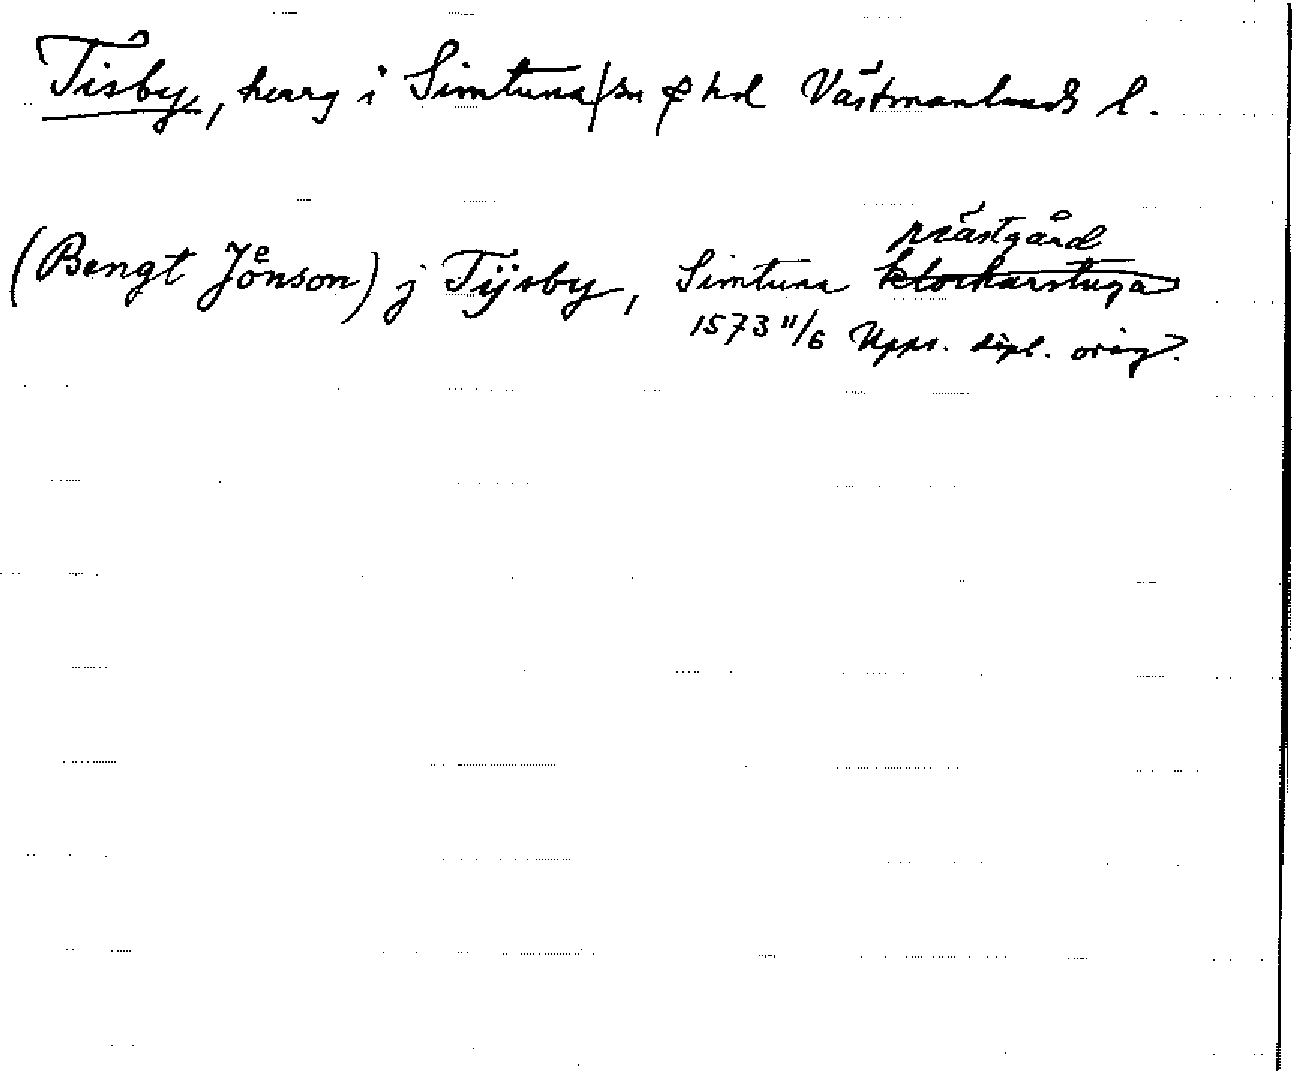 Tisby, herrg i Simtuna sn o hd Västmanlands l.
prästgård
(Bengt Jönson) j Tijsby, Simtuna klockarstuga
1573 11/6 Upps. dipl. orig.